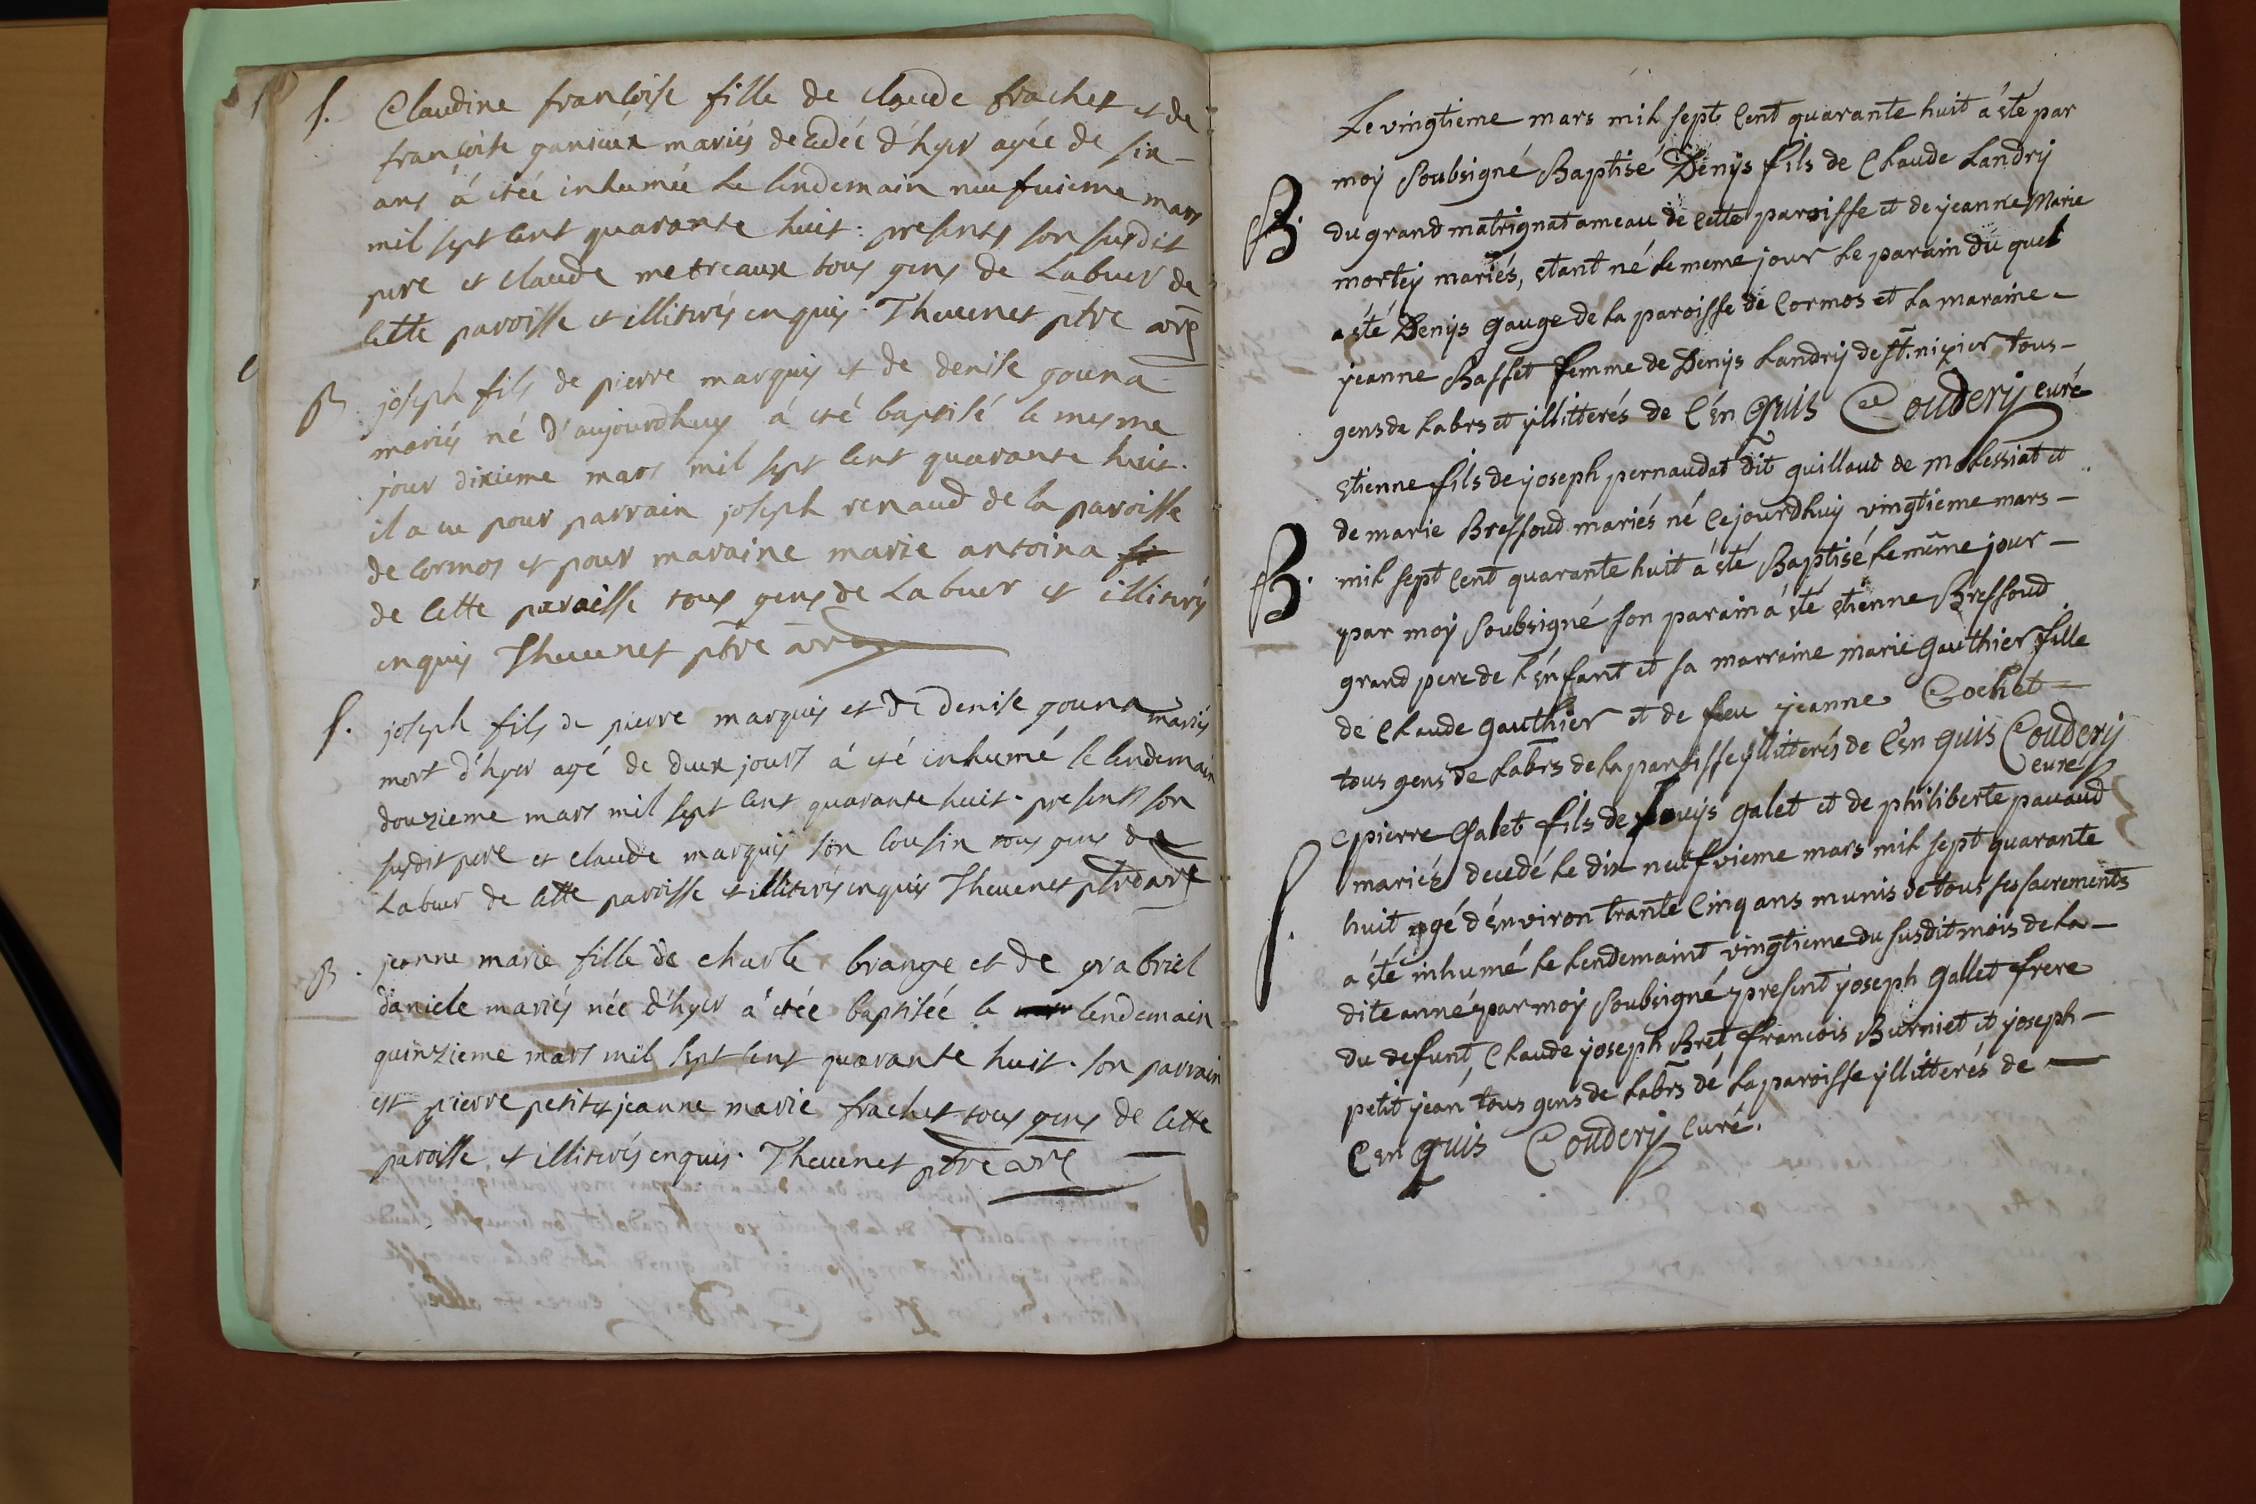 S. Claudine françoise fille de claude frachet et de
françoise ganieux mariés decedée d'hyer agée de six
ans á étée inhumée le lendemain neufvieme mars
mil sept cent quarante huit. presents son susdit
pere et claude metreaux tous gens de Labeur de
cette paroisse et illiterés enquis. Thevenet ptre
B. joseph fils de pierre marquis et de denise gouna
mariés né d'aujourdhuy á eté baptisé le mesme
jour dixieme mars mil sept cent quarante huit.
il a eu pour parrain joseph renaud de la paroisse
de cormos et pour maraine marie antoina
de cette paroisse tous gens de Labeur et illiterés
enquis Thevenet ptre
S. joseph fils de pierre marquis et de denise gouna mariés
mort d'hyer agé de deux jours á eté inhumé le lendemain
douzieme mars mil sept cent quarante huit. presents son
susdit pere et claude marquis son cousin tous gens de
Labeur de cette paroisse et illiterés enquis Thevenet ptre
B. jeanne marie fille de charle brange et de gabriel
daniele mariés née d'hyer á étée baptisée le lendemain
quinzieme mars mil sept cent quarante huit. son parrain
est pierre petit et jeanne marie frachet tous gens de cette
paroisse et illiterés enquis. Thevenet ptre
Le vingtieme mars mil sept cent quarante huit á été par
moy soubsigné Baptisé Denys fils de Claude Landry
B. du grand matrignat ameau de cette paroisse et de yeanne Marie
mortey mariés, etant né le meme jour le parain du quel
a été Denys gauge de la paroisse de Cormos et la maraine
yeanne Basset femme de Denys Landry de st. nizier tous
gens de Labrs et yllitterés de C'en quis Coudery curé
etienne fils de joseph pernaudat dit guillaud de molessiat et
de marie Bressoud mariés né cejourdhuy vingtieme mars
B. mil sept cent quarante huit á été Baptisé le même jour
par moy soubsigné son parain á été etienne Bressoud
grand pere de l'enfant et sa marraine marie gauthier fille
de Claude gauthier et de feu yeanne Cochet
tous gens de Labrs de la paroisse yllitterés de C'en quis Coudery
curé
pierre Galet fils de Louys galet et de philiberte pauaud
mariés decedé le dix neufvieme mars mil sept quarante
S. huit agé d'environ trante cinq ans munis de tous ses sacrements
á été inhumé le lendemaint vingtieme du susdit mois de la
dite année par moy soubsigné present yoseph gallet frere
du defunt, Claude yoseph Bret francois Burniet et yoseph
petit yean tous gens de Labrs de la paroisse yllitterés de
C'en quis Coudery curé.